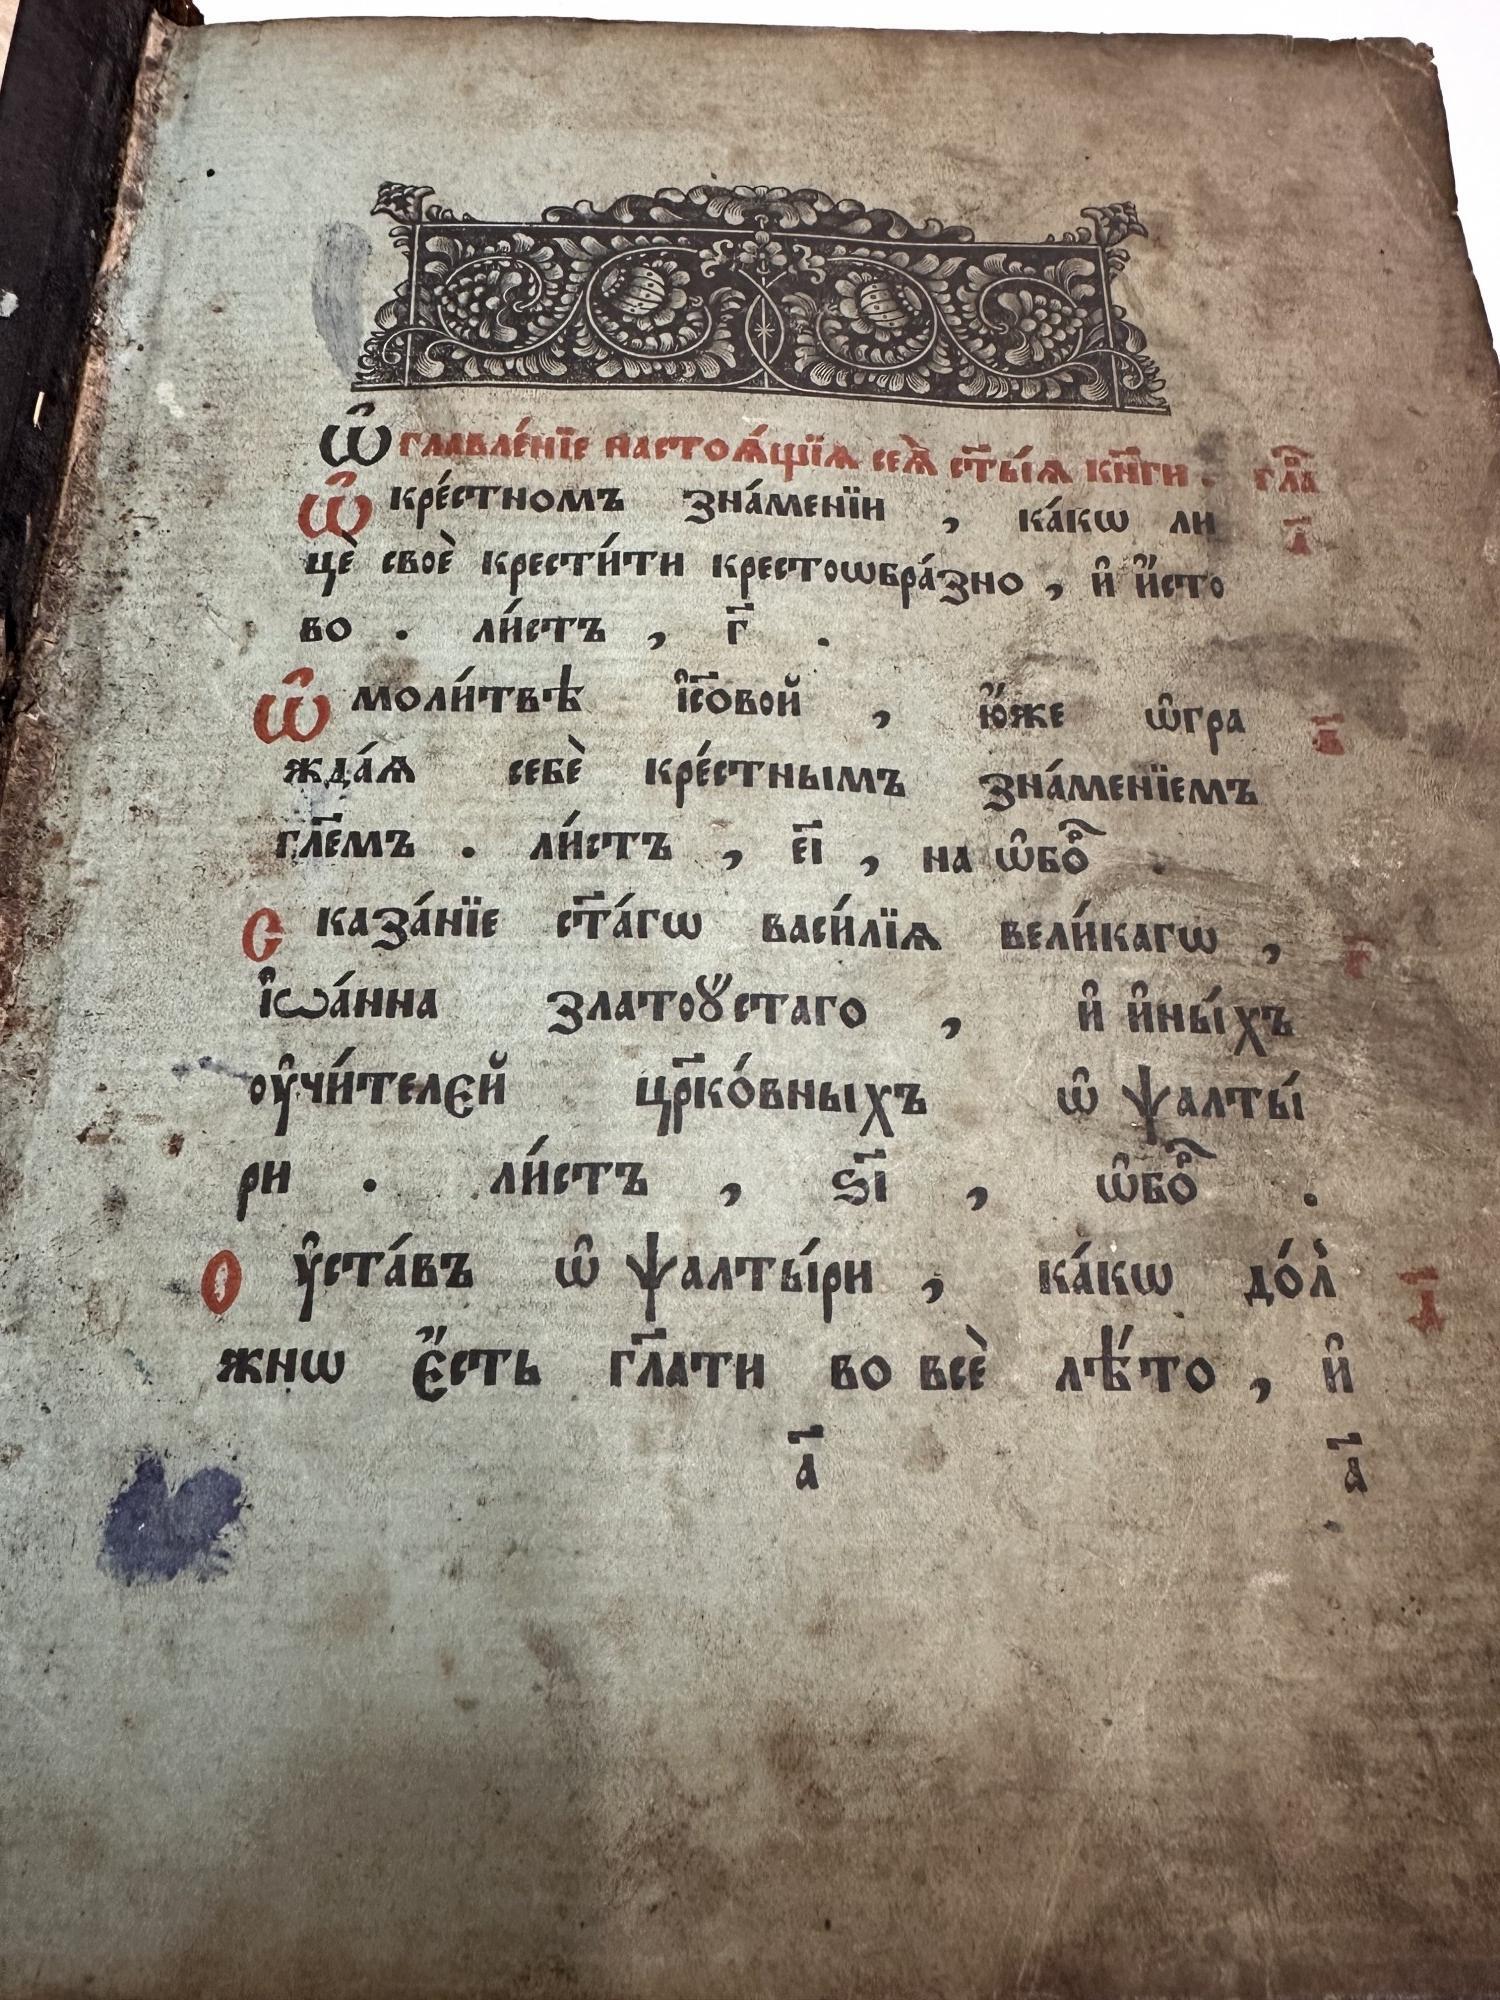 Ѡ҆главле́нїе настоѧ́щїѧ сеѧ̀ ст҃ы́ѧ кн҃ги . гла҃
Ѡ҆ кре́стномъ зна́менїи , ка́кѡ ли а҃
цѐ своѐ крести́ти крестоѡбра́зно , и҆ и҆́сто
во . ли́стъ , г҃ .
Ѡ҆ моли́твѣ і҆с҃овой , ю҆́же ѡ҆гра в҃
жда́ѧ себѐ кре́стнымъ зна́менїемъ
гл҃емъ . ли́стъ , е҃і , на ѡ҆бо́р .
Сказа́нїе ст҃а́гѡ васи́лїѧ вели́кагѡ , г҃
і҆ѡа́нна златоꙋ́стаго , и҆ и҆ны́хъ
ᲂу҆чи́телєй цр҃ко́вныхъ ѡ҆ ѱалты́
ри . ли́стъ , ѕ҃і , ѡ҆бо́р .
Оу҆ста́въ ѡ҆ ѱалты́ри , ка́кѡ до́л д҃
жнѡ є҆́сть гл҃ати во всѐ лѣ́то , и҆
а҃ а҃